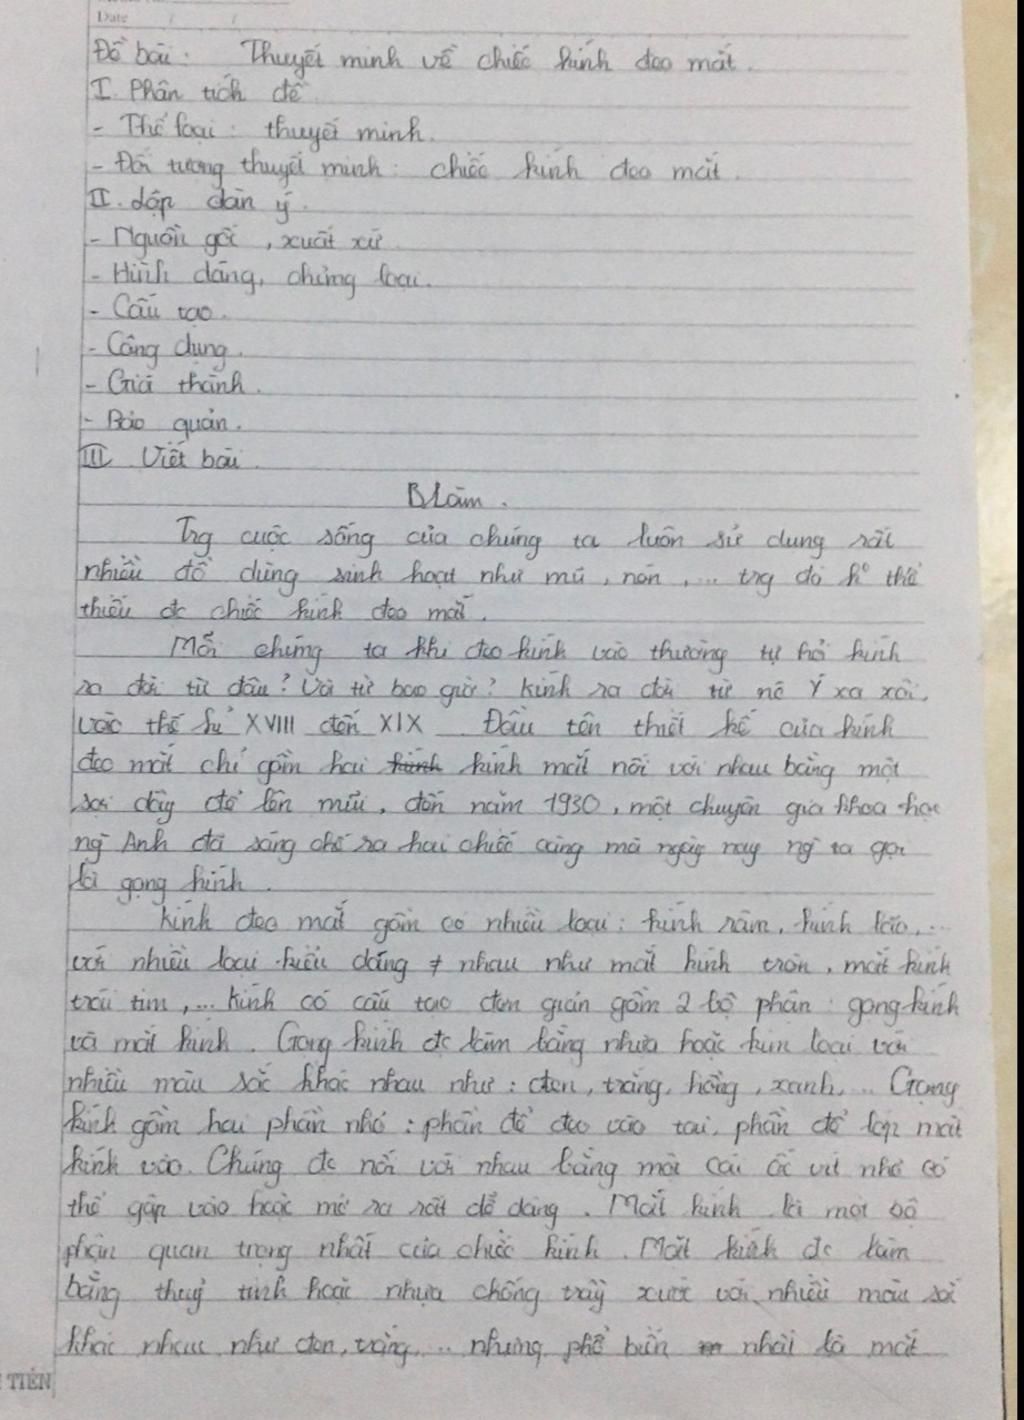 Date / /
Đề bài: Thuyết minh về chiếc kính đeo mắt.
I. Phân tích đề
- Thể loại: thuyết minh.
- Đối tượng thuyết minh: chiếc kính đeo mắt.
II. Lập dàn ý.
- Nguồn gốc, xuất xứ
- Hình dáng, chủng loại.
- Cấu tạo.
- Công dụng.
- Giá thành.
- Bảo quản.
III. Viết bài.
Blàm.
Trg cuộc sống của chúng ta luôn sử dụng rất
nhiều đồ dùng sinh hoạt như mũ, nón,... trg đó k° thể
thiếu đc chiếc kính đeo mắt.
Mỗi chúng ta khi đeo kính vào thường tự hỏi kính
ra đời từ đâu? Và từ bao giờ? Kính ra đời từ nc Ý xa xôi,
vào thế kỉ XVIII đến XIX. Đầu tên thiết kế của kính
đeo mắt chỉ gồm hai kính kính mắt nối với nhau bằng một
sợi dây để lên mũi, đến năm 1930, một chuyên gia khoa học
ng Anh đã sáng chế ra hai chiếc càng mà ngày nay ng ta gọi
là gọng kính.
Kính đeo mắt gồm có nhiều loại: kính râm, kính lão,...
với nhiều loại kiểu dáng ≠ nhau như mắt kính tròn, mắt kính
trái tim,... Kính có cấu tạo đơn giản gồm 2 bộ phận: gọng kính
và mắt kính. Gọng kính đc làm bằng nhựa hoặc kim loại với
nhiều màu sắc khác nhau như: đen, trắng, hồng, xanh,... Gọng
kính gồm hai phần nhỏ: phần để đeo vào tai, phần để lắp mắt
kính vào. Chúng đc nối với nhau bằng một cái ốc vít nhỏ có
thể gập vào hoặc mở ra rất dễ dàng. Mắt kính là một bộ
phận quan trọng nhất của chiếc kính. Mắt kính đc làm
bằng thuỷ tinh hoặc nhựa chống trầy xước với nhiều màu sắc
khác nhau như đen, trắng,... nhưng phổ biến nhất là mắt
TIẾN